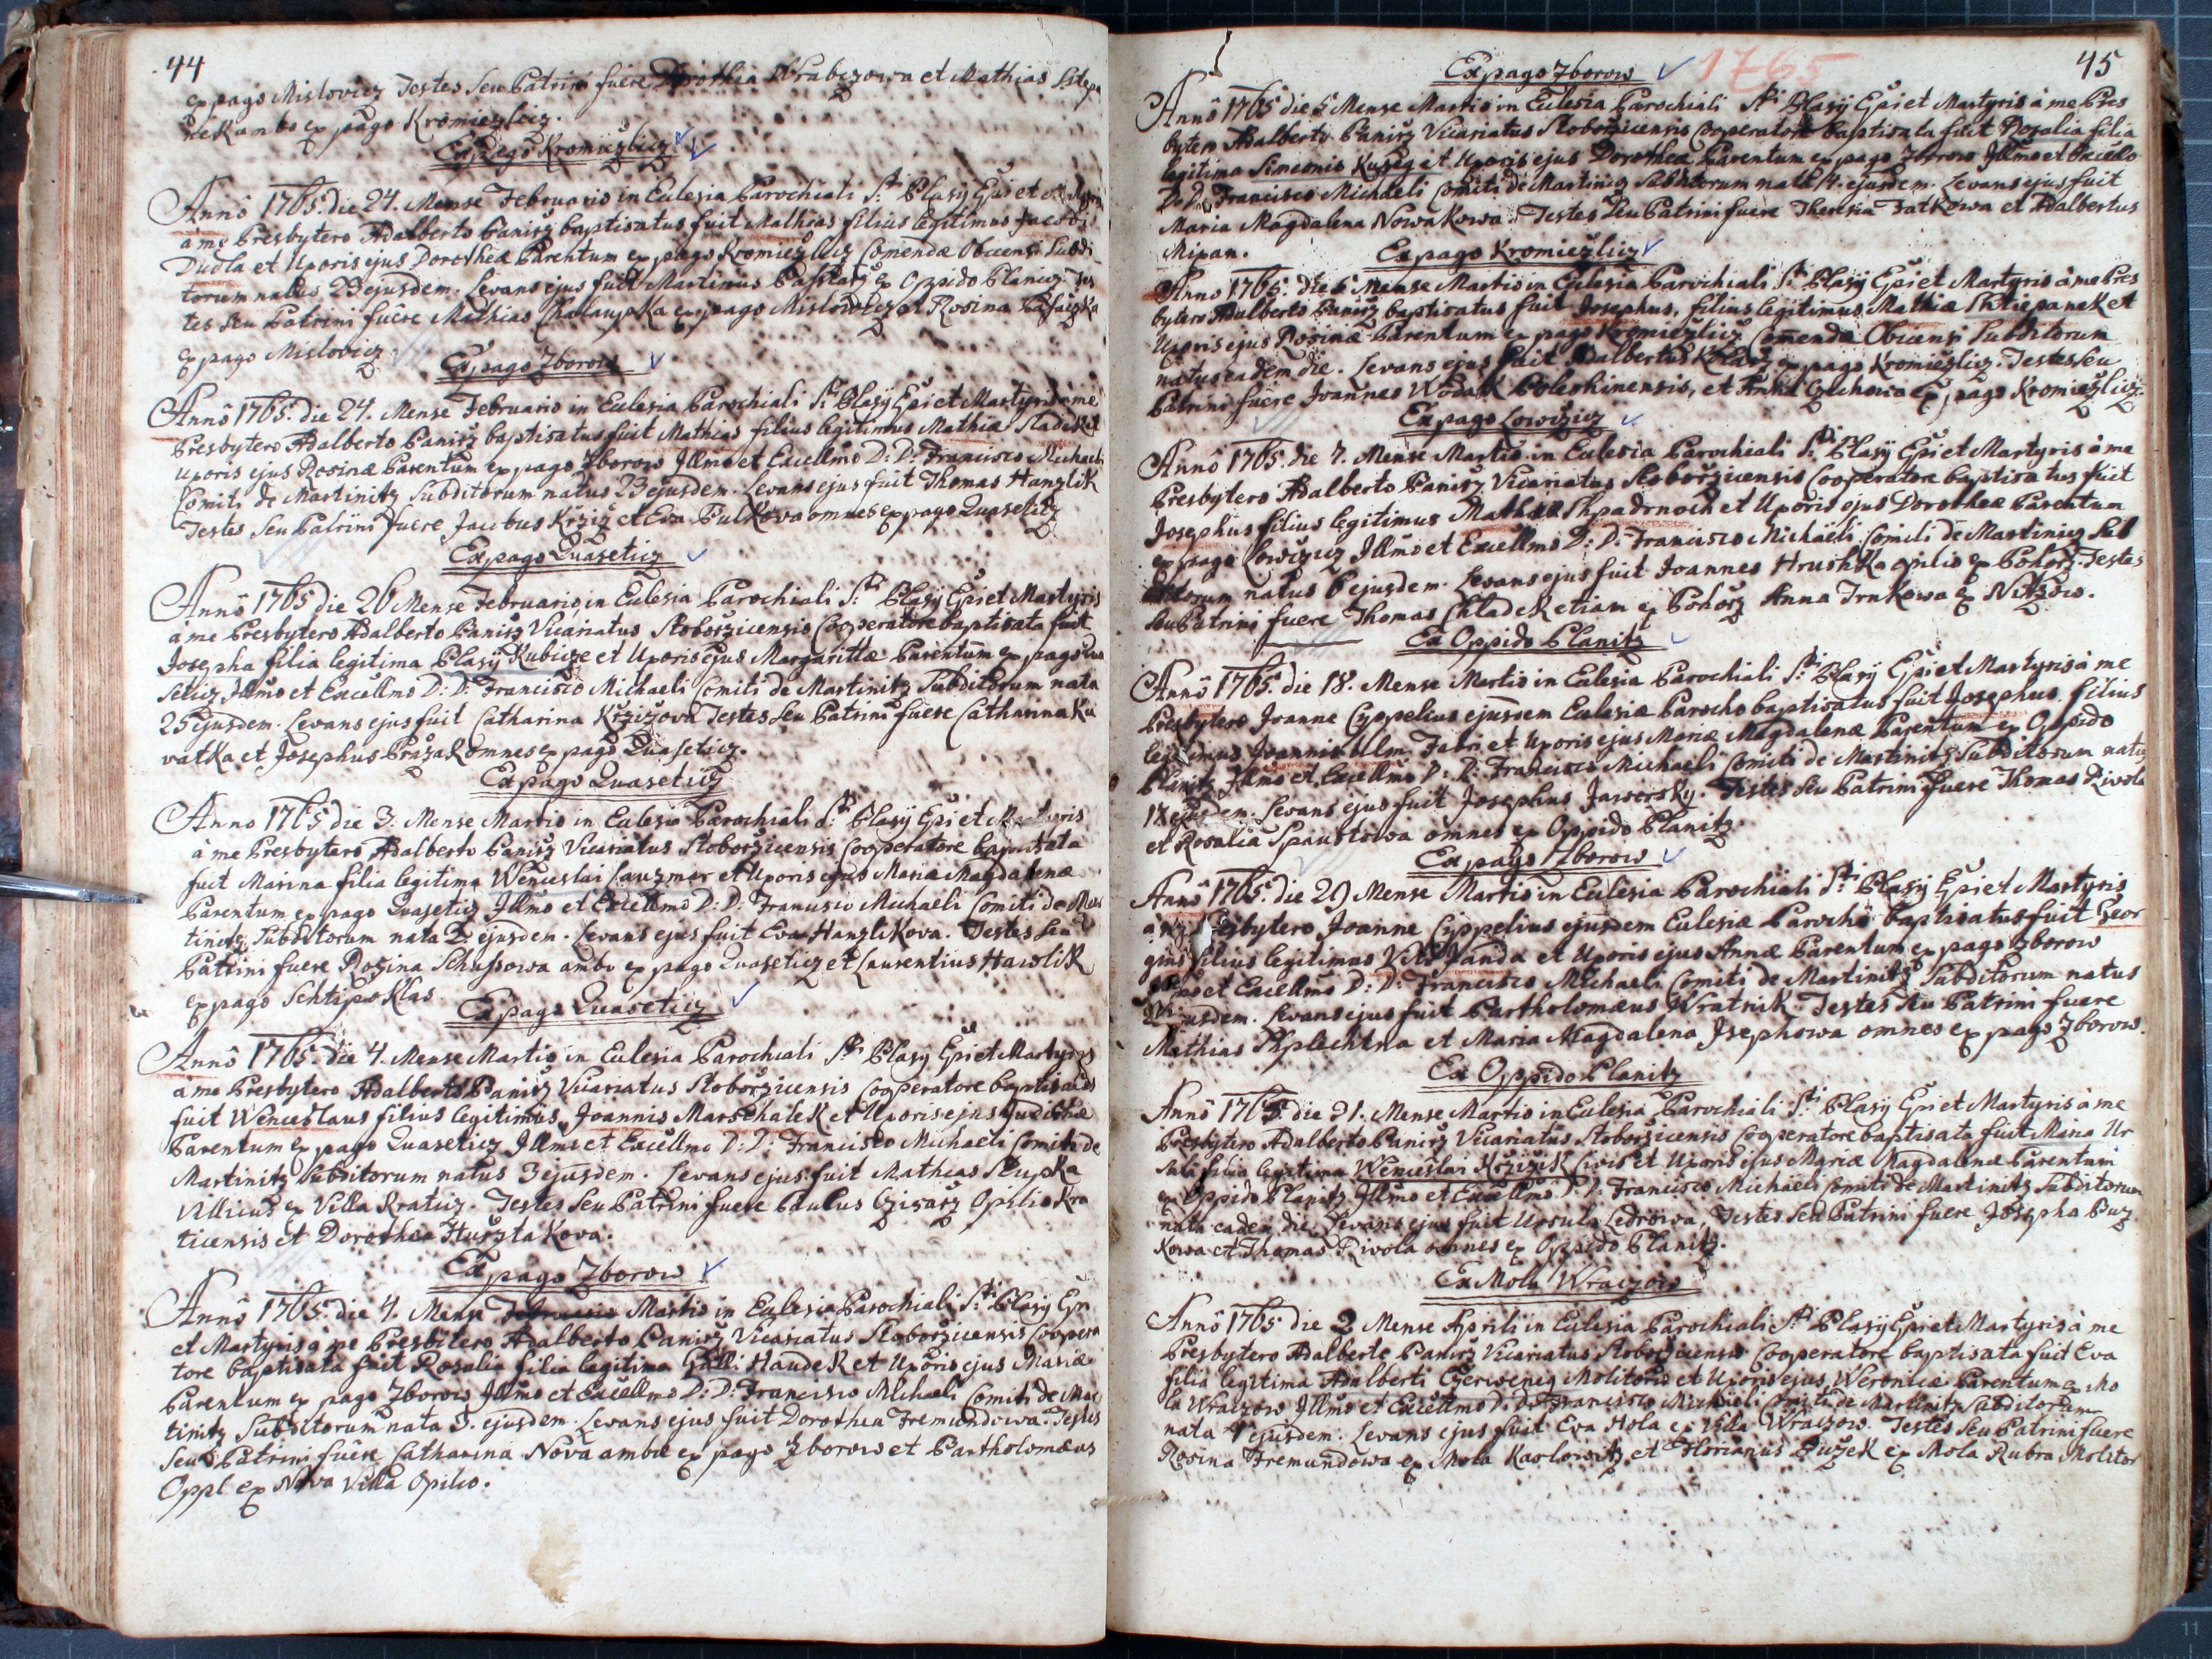 44
ex pago Mislovicz Testes Seu Patrini fuere Dorothea Wrabczowa et Mathias Sstiepa
nek ambo ex pago Kromiezlicz.
Ex pago Kromiezlicz
Annô 1765. die 24. Mense Februario in Eulesia Parochiali Sti Blasÿ Epi et
à me Presbytero Adalberto Panirz baptisatus fuit Mathias filius legitimus Jacobi
Dudla et Uxoris ejus Dorotheæ Parentum ex pago Kromiezlicz Comendæ Obicensi Subdi
torum natus 23 ejusdem. Levans ejus fuit Martinus ex Oppido Planicz. Tes
tes Seu Patrini fuêre Mathias Chalaupka ex pago Mislowicz et Rosina
ex pago Mislovicz
Ex pago Zborow
Annô 1765. die 24. Mense Februario in Eulesia Parochiali Sti Blasÿ Epi et Martyris à me
Presbytero Adalberto Panirz baptisatus fuit Mathias filius legitimus Mathiæ Sladek et
Uxoris ejus Rosinæ Parentum ex pago Zborow Illmo et Excellmo D: D: Francisco Michaeli
Comiti de Martinitz Subditorum natus 23 ejusdem. Levans ejus fuit Thomas Hanzlik
Testes Seu Patrini fuere Jacobus Krziz et Eva Pulkova omnes ex pago Quasetitz
Ex pago Quaseticz
Annô 1765 die 26 Mense Februario in Eulesia Parochiali Sti Blasÿ Epi et Martyris
à me Presbytero Adalberto Panirz Vicariatus Stoborzicensis Cooperatore baptisata fuit
Josepha filia legitima Blasÿ Kubicze et Uxoris ejus Margarittæ Parentum ex pago Qua
seticz Illmo et Excellmo D: D: Francisco Michaeli Comiti de Martinitz Subditorum nata
25 ejusdem. Levans ejus fuit Catharina Krzizova Testes Seu Patrini fuere Catharina Ku
vatka et Josephus Prazak omnes ex pago Quaseticz.
Ex pago Quaseticz
Anno 1765 die 3. Mense Martio in Eulesia Parochiali Sti Blasÿ Epi et Martyris
à me Presbytero Adalberto Panirz Vicariatus Stoborzicensis Cooperatore baptisata
fuit Marina filia legitima Wenceslai Lauzmar et Uxoris ejus Mariæ Magdalenæ
Parentum ex pago Quaseticz Illmo et Excellmo D: D: Francisco Michaeli Comiti de Mar
tinitz Subditorum nata 2. ejusdem. Levans ejus fuit Eva Hanzlikova. Testes Seu
Patrini fuere Rosina Schussowa ambo ex pago Quaseticz et Laurentius Hawlik
ex pago Schtipoklas
Ex pago Quaseticz
Annô 1765. die 4. Mense Martio in Eulesia Parochiali Sti Blasÿ Epi et Martyris
à me Presbytero Adalberto Panirz Vicariatus Stoborzicensis Cooperatore baptisatus
fuit Wenceslaus filius legitimus Joannis Marschalek et Uxoris ejus Judithæ
Parentum ex pago Quaseticz Illmo et Excellmo D: D: Francisco Michaeli Comiti de
Martinitz Subditorum natus 3 ejusdem. Levans ejus fuit Mathias Krupka
Villicus ex Villa Kraticz. Testes Seu Patrini fuere Paulus Czisarz Opilio Kra
ticensis et Dorothea Hurztakova.
Ex pago Zborow
Annô 1765. die 4. Mense Februario Martio in Eulesia Parochiali Sti Blasÿ Epi
et Martyris à me Presbitero Adalberto Panirz Vicariatus Stoborzicensis Coopera
tore baptisata fuit Rosalia filia legitima Galli Haudek et Uxoris ejus Mariæ
Parentum ex pago Zborow Illmo et Excellmo D: D: Francisco Michaeli Comiti de Mar
tinitz Subditorum nata 3. ejusdem. Levans ejus fuit Dorothea Fremundowa. Testes
Seu Patrini fuêre Catharina Nova ambæ ex pago Zborow et Bartholomæus
Oppl ex Nova Villa Opilio.
45
Ex pago Zborow 1765
Annô 1765 die 5 Mense Martio in Eulesia Parochiali Sti Blasÿ Epi et Martyris à me Pres
bytero Adalberto Panirz Vicariatus Stoborzicensis Cooperatore baptisata fuit Rosalia filia
legitima Simeonis Kuszeg et Uxoris ejus Dorotheæ Parentum ex pago Zborow Illmo et Excello
D. D. Francisco Michaeli Comiti de Martinicz Subditorum nata 4. ejusdem. Levans ejus fuit
Maria Magdalena Nowakowa. Testes Seu Patrini fuere Theresia Fatkowa et Adalbertus
Mixan.
Ex pago Kromiezlicz
Anno 1765. die 6 Mense Martio in Eulesia Parochiali Sti Blasÿ Epi et Martyris à me Pres
bytero Adalberto Panirz baptisatus fuit Josephus, filius legitimus Mathiæ Shtiepanek et
Uxoris ejus Rosinæ Parentum ex pago Kromiezlicz Comendæ Obicensi Subditorum
natus eadem die. Levans ejus fuit Adalbertus ex pago Kromiezlicz. Testes Seu
Patrini fuêre Joannes Wodak Poleshinensis, et Anna Czechowa ex pago Kromiezlicz.
Ex pago Lowczicz
Annô 1765. die 7. Mense Martio in Eulesia Parochiali Sti Blasÿ Epi et Martyris à me
Presbytero Adalberto Panirz Vicariatus Stoborzicensis Cooperatore baptisatus fuit
Josephus filius legitimus Mathiæ Shpadrnoch et Uxoris ejus Dorotheæ Parentum
ex pago Lowczicz Illmo et Excellmo D: D: Francisco Michaëli Comiti de Martinicz Sub
ditorum natus 6 ejusdem. Levans ejus fuit Joannes Hrushka opilio ex Pohorz. Testes
Seu Patrini fuere Thomas Chladek etiam ex Pohorz Anna Trnkowa ex Nitzow.
Ex Oppido Planitz
Annô 1765. die 18. Mense Martio in Eulesia Parochiali Sti Blasÿ Epi et Martyris à me
Presbytero Joanne Cyppelius ejusdem Eulesiæ Parocho baptisatus fuit Josephus filius
legitimus Joannis Ulm Fabri et Uxoris ejus Mariæ Magdalenæ Parentum ex Oppido
Planitz Illmo et Excellmo D: D: Francisco Michaeli Comiti de Martinitz Subditorum natus
18 ejusdem. Levans ejus fuit Josephus Jawersky. Testes Seu Patrini fuere Thomas Rivola
et Rosalia Spaustowa omnes ex Oppido Planitz.
Ex pago Zborow
Annô 1765. die 20 Mense Martio in Eulesia Parochiali Sti Blasÿ Epi et Martyris
à me Presbytero Joanne Cyppelius ejusdem Eulesiæ Parocho baptisatus fuit Geor
gius filius legitimus Viti Janda et Uxoris ejus Annæ Parentum ex pago Zborow
Illmo et Excellmo D: D: Francisco Michaeli Comiti de Martinitz Subditorum natus
ejusdem. Levans ejus fuit Bartholomæus Wratnik. Testes Seu Patrini fuere
Mathias Shplichtna et Maria Magdalena Jsephowa omnes ex pago Zborow.
Ex Oppido Planitz
Annô 1765 die 21. Mense Martio in Eulesia Parochiali Sti Blasÿ Epi et Martyris à me
Presbytero Adalberto Panirz Vicariatus Stoborzicensis Cooperatore baptisata fuit Maria Ur
sula filia legitima Wenceslai Krziżek Civis et Uxoris ejus Mariæ Magdalenæ Parentum
ex Oppido Planitz Illmo et Excellmo D: D: Francisco Michaeli Comiti de Martinitz Subditorum
nata eadem die. Levans ejus fuit Ursula Ledrowa, Testes Seu Patrini fuere Josepha Puz
kowa et Thomas Rivola omnes ex Oppido Planitz.
Ex Mola Wraczow
Annô 1765 die 2 Mense Aprili in Eulesia Parochiali Sti Blasÿ Epi et Martyris à me
Presbytero Adalberto Panirz Vicariatus Stoborzicensis Cooperatore baptisata fuit Eva
filia legitima Adalberti Czerweneg Molitoris et Uxoris ejus Weronicæ Parentum ex Mo
la Wraczow Illmo et Excellmo D: D: Francisco Michaeli Comiti de Martinitz Subditorum
nata 1 ejusdem. Levans ejus fuit Eva Hola ex Villa Wraczow. Testes Seu Patrini fuere
Rosina Fremundowa ex Mola Karlowitz et Florianus Duzek ex Mola Rubra Molitor
11